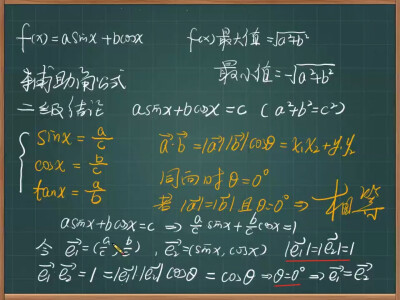 f(x)=asinx+bcosx
f(x)最大值=√a²+b²
最小值=-√a²+b²
辅助角公式
二级结论 asinx+bcosx=c (a²+b²=c²)
sinx=a/c
cosx=b/c
tanx=a/b
a⃗·b⃗=|a⃗||b⃗|cosθ=x₁x₂+y₁y₂
同向时θ=0°
若|a⃗|=|b⃗|且θ=0°⇒相等
asinx+bcosx=c ⇒ a/c sinx+b/c cosx=1
令 e₁⃗=(a/c, b/c), e₂⃗=(sinx, cosx) |e₁⃗|=|e₂⃗|=1
e₁⃗ e₂⃗=1=|e₁⃗||e₂⃗|cosθ=cosθ⇒θ=0°⇒e₁⃗=e₂⃗